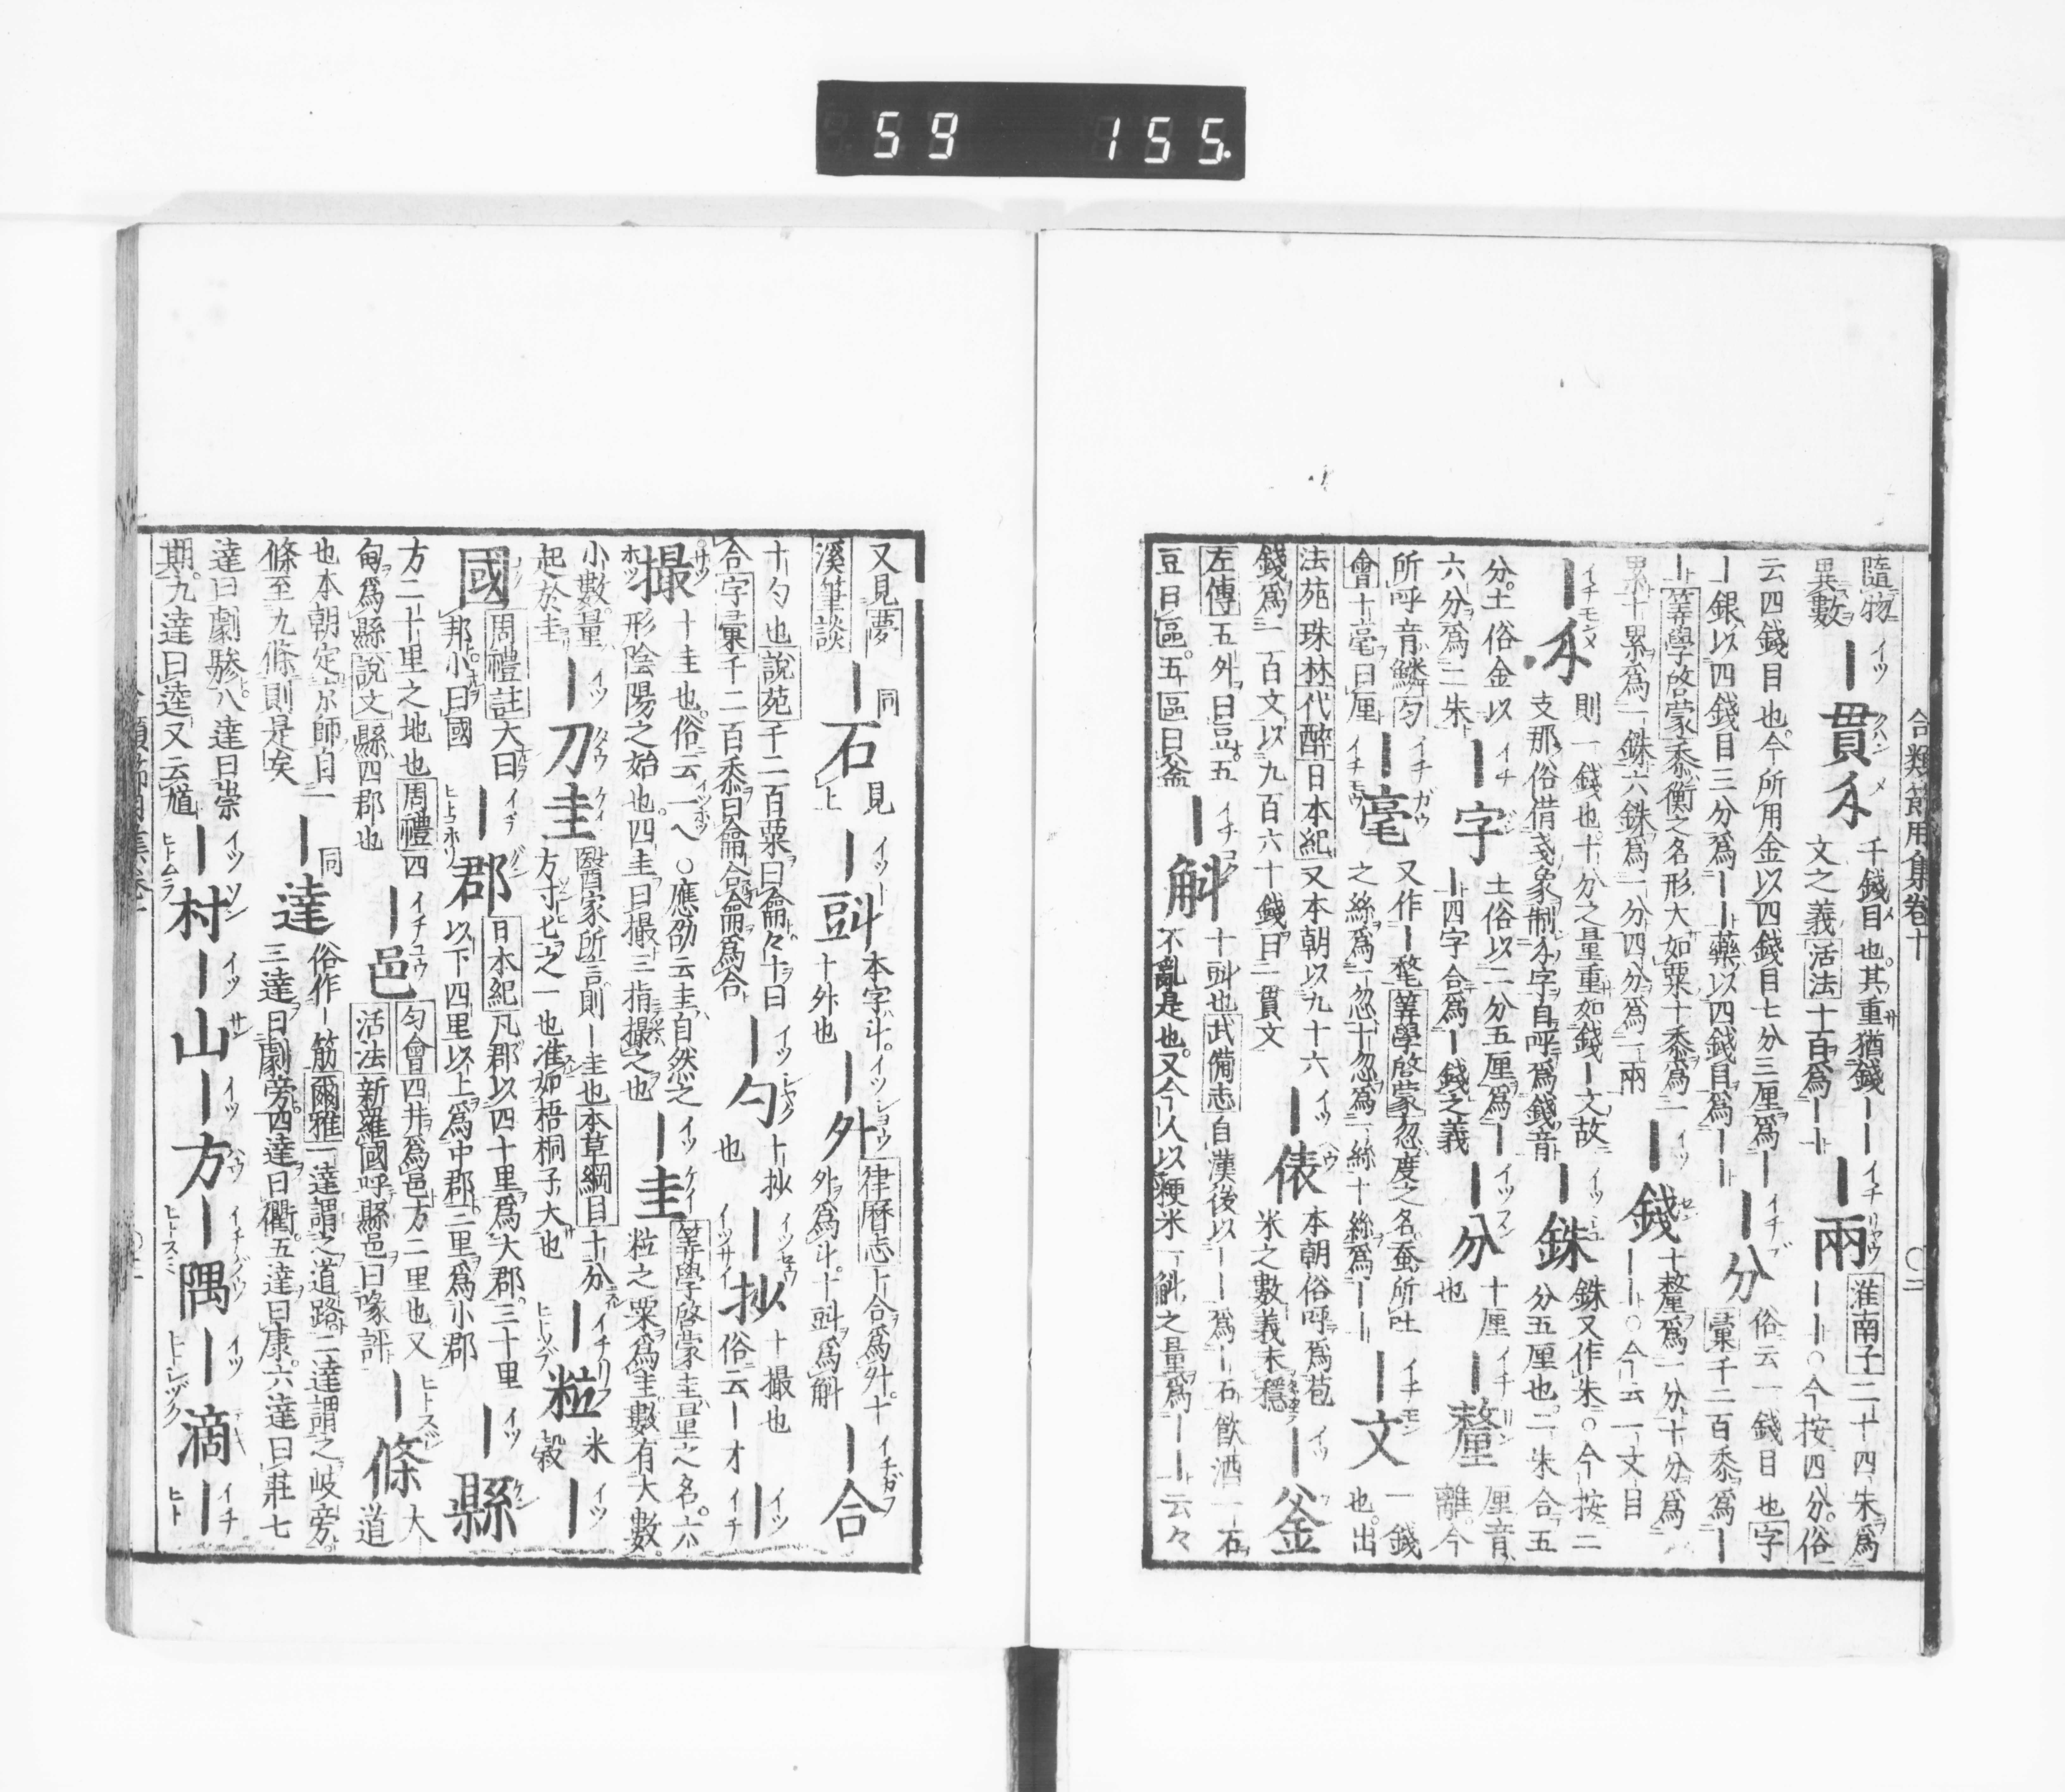 59 155.
合類節用集卷十 〇二
隨物異數 ｜貫 千錢目也其重猶錢｜｜文之義活法十百爲｜｜ ｜兩 淮南子二十四朱爲｜｜〇今按四分俗
云四錢目也今所用金以四錢目七分三厘爲｜｜銀以四錢目三分爲｜｜藥以四錢目爲｜｜ ｜分 俗云一錢目也字彙千二百黍爲｜
｜筭學啓蒙黍衡之名形大如粟十黍爲一累十累爲一銖六銖爲一分四分爲一兩 ｜錢 十釐爲一分十分爲｜｜〇今云一文目
則一錢也十分之量重如錢｜文故支那俗借戔象制字自呼爲錢音 ｜銖 銖又作朱〇今按二分五厘也二朱合五
分土俗金以六分爲二朱 ｜字 土俗以二分五厘爲｜｜四字合爲｜錢之義 ｜分 十厘也 ｜釐 厘音離今
所呼音鱗匀會十毫曰厘 ｜毫 又作｜氂筭學啓蒙忽度之名蚕所吐之絲爲一忽十忽爲一絲十絲爲｜｜ ｜文 一錢也出
法苑珠林代醉日本紀又本朝以九十六錢爲一百文以九百六十錢曰一貫文 ｜俵 本朝俗呼爲苞米之數義未穩 ｜釜
左傳五升曰豆五豆曰區五區曰釜 ｜斛 十㪷也武備志自漢後以｜｜爲｜石飮酒一石不亂是也又今人以粳米一斛之量爲｜｜云々
又見夢溪筆談 ｜石 同見上 ｜㪷 本字斗十升也 ｜升 律曆志十合爲升十升爲斗十㪷爲斛 ｜合
十勺也說苑千二百粟曰龠々十曰合字彙千二百黍曰龠合龠爲合 ｜勺 十抄也 ｜抄 十撮也俗云｜才 ｜
撮 十圭也俗云一ヘ〇應劭云圭自然之形陰陽之始也四圭曰撮三指撮之也 ｜圭 筭學啓蒙圭量之名六粒之粟爲圭數有大數
小數量起於圭 ｜刀圭 醫家所言則｜圭也本草綱目十分方寸七之一也准如梧桐子大也 ｜粒 米穀 ｜
國 周禮註大曰邦小曰國 ｜郡 日本紀凡郡以四十里爲大郡三十里以下四里以上爲中郡三里爲小郡 ｜縣
方二十里之地也周禮四甸爲縣說文縣四郡也 ｜邑 匀會四井爲邑方二里也又活法新羅國呼縣邑曰喙評 ｜條 大道
也本朝定京師自一條至九條則是矣 ｜達 同俗作｜筋爾雅一達謂之道路二達謂之岐旁三達曰劇旁四達曰衢五達曰康六達曰莊七
達曰劇驂八達曰崇期九達曰逵又云馗 ｜村 ｜山 ｜方 ｜隅 ｜滴 ｜